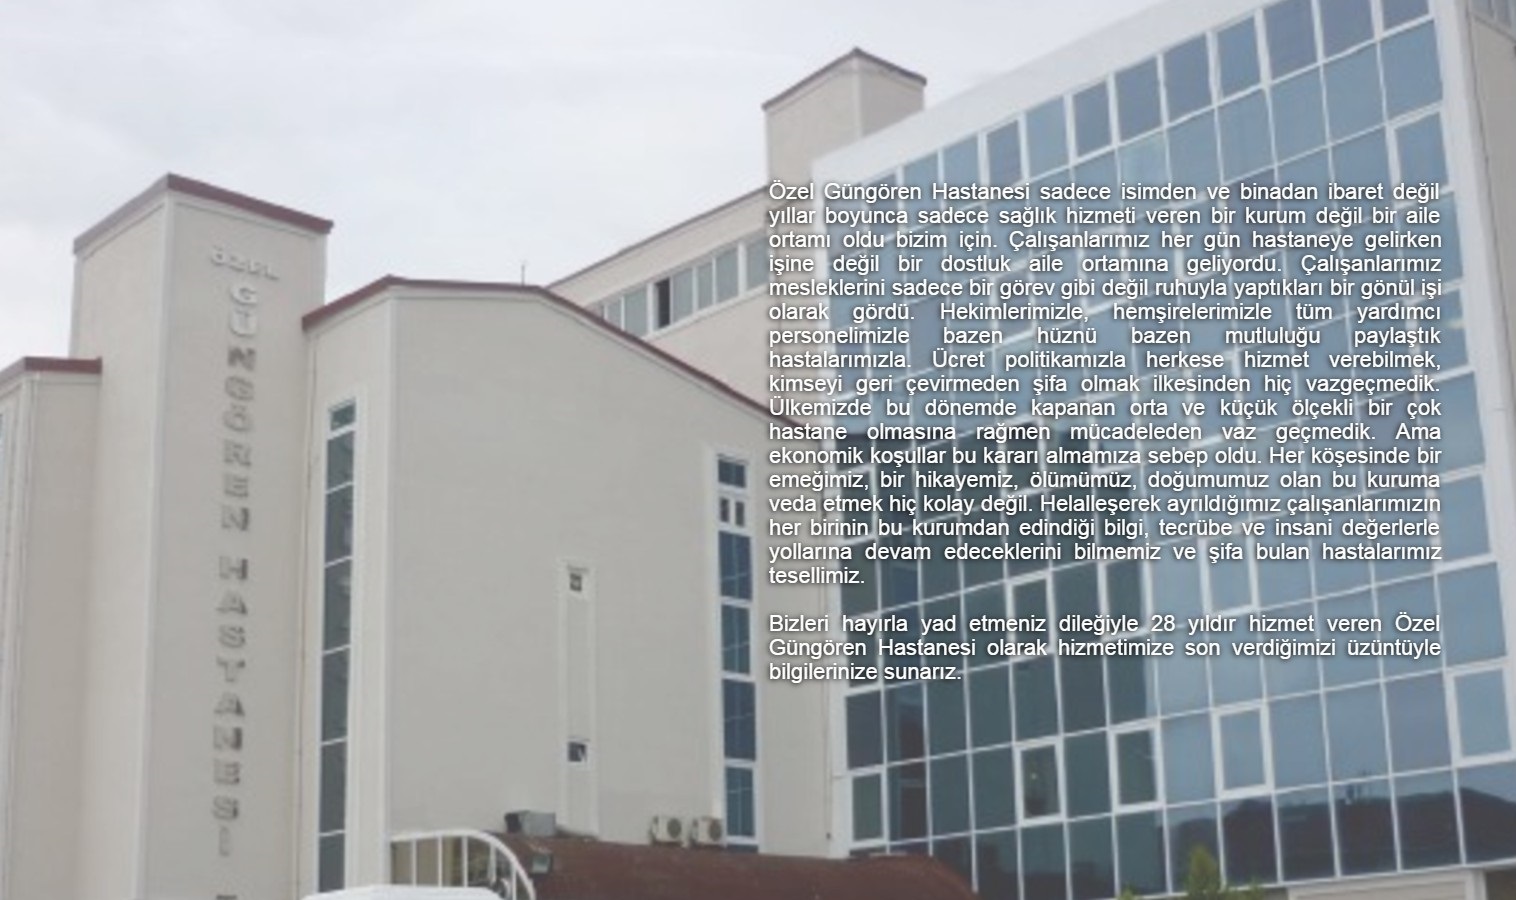 ÖZEL
GÜNGÖREN HASTANESİ
Özel Güngören Hastanesi sadece isimden ve binadan ibaret değil
yıllar boyunca sadece sağlık hizmeti veren bir kurum değil bir aile
ortamı oldu bizim için. Çalışanlarımız her gün hastaneye gelirken
işine değil bir dostluk aile ortamına geliyordu. Çalışanlarımız
mesleklerini sadece bir görev gibi değil ruhuyla yaptıkları bir gönül işi
olarak gördü. Hekimlerimizle, hemşirelerimizle tüm yardımcı
personelimizle bazen hüznü bazen mutluluğu paylaştık
hastalarımızla. Ücret politikamızla herkese hizmet verebilmek,
kimseyi geri çevirmeden şifa olmak ilkesinden hiç vazgeçmedik.
Ülkemizde bu dönemde kapanan orta ve küçük ölçekli bir çok
hastane olmasına rağmen mücadeleden vaz geçmedik. Ama
ekonomik koşullar bu kararı almamıza sebep oldu. Her köşesinde bir
emeğimiz, bir hikayemiz, ölümümüz, doğumumuz olan bu kuruma
veda etmek hiç kolay değil. Helalleşerek ayrıldığımız çalışanlarımızın
her birinin bu kurumdan edindiği bilgi, tecrübe ve insani değerlerle
yollarına devam edeceklerini bilmemiz ve şifa bulan hastalarımız
tesellimiz.
Bizleri hayırla yad etmeniz dileğiyle 28 yıldır hizmet veren Özel
Güngören Hastanesi olarak hizmetimize son verdiğimizi üzüntüyle
bilgilerinize sunarız.